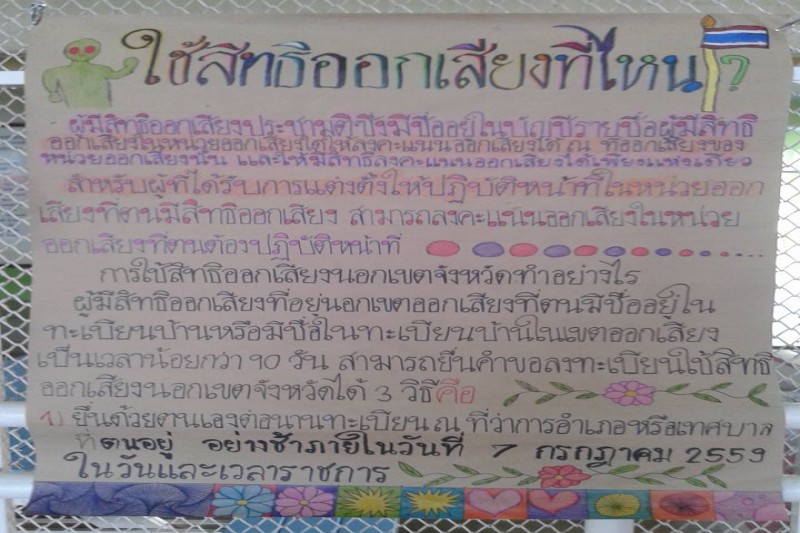 ใช้สิทธิออกเสียงที่ไหน ?
ผู้มีสิทธิออกเสียงประชามติซึ่งมีชื่ออยู่ในบัญชีรายชื่อผู้มีสิทธิ
ออกเสียงในหน่วยออกเสียงใดให้ลงคะแนนออกเสียงได้ ณ ที่ออกเสียงของ
หน่วยออกเสียงนั้น และให้มีสิทธิลงคะแนนออกเสียงได้เพียงแห่งเดียว
สำหรับผู้ที่ได้รับการแต่งตั้งให้ปฏิบัติหน้าที่ในหน่วยออก
เสียงที่ตนมีสิทธิออกเสียง สามารถลงคะแนนออกเสียงในหน่วย
ออกเสียงที่ตนต้องปฏิบัติหน้าที่
การใช้สิทธิออกเสียงนอกเขตจังหวัดทำอย่างไร
ผู้มีสิทธิออกเสียงที่อยู่นอกเขตออกเสียงที่ตนมีชื่ออยู่ใน
ทะเบียนบ้านหรือมีชื่อในทะเบียนบ้านในเขตออกเสียง
เป็นเวลาน้อยกว่า 90 วัน สามารถยื่นคำขอลงทะเบียนใช้สิทธิ
ออกเสียงนอกเขตจังหวัดได้ 3 วิธีคือ
1) ยื่นด้วยตนเองต่อนายทะเบียน ณ ที่ว่าการอำเภอหรือเทศบาล
ที่ตนอยู่ อย่างช้าภายในวันที่ 7 กรกฎาคม 2559
ในวันและเวลาราชการ